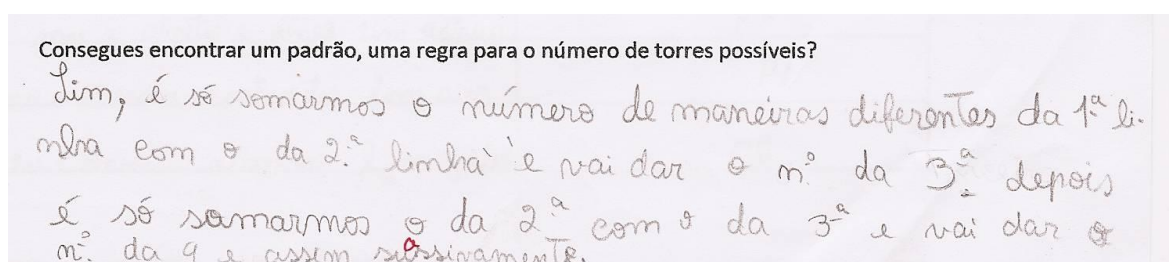 Consegues encontrar um padrão, uma regra para o número de torres possíveis?
Sim, é só somarmos o número de maneiras diferentes da 1.ª li-
nha com o da 2.ª linha e vai dar o n.º da 3.ª depois
é só somarmos o da 2ª com o da 3ª e vai dar o
n.º da 4 e assim